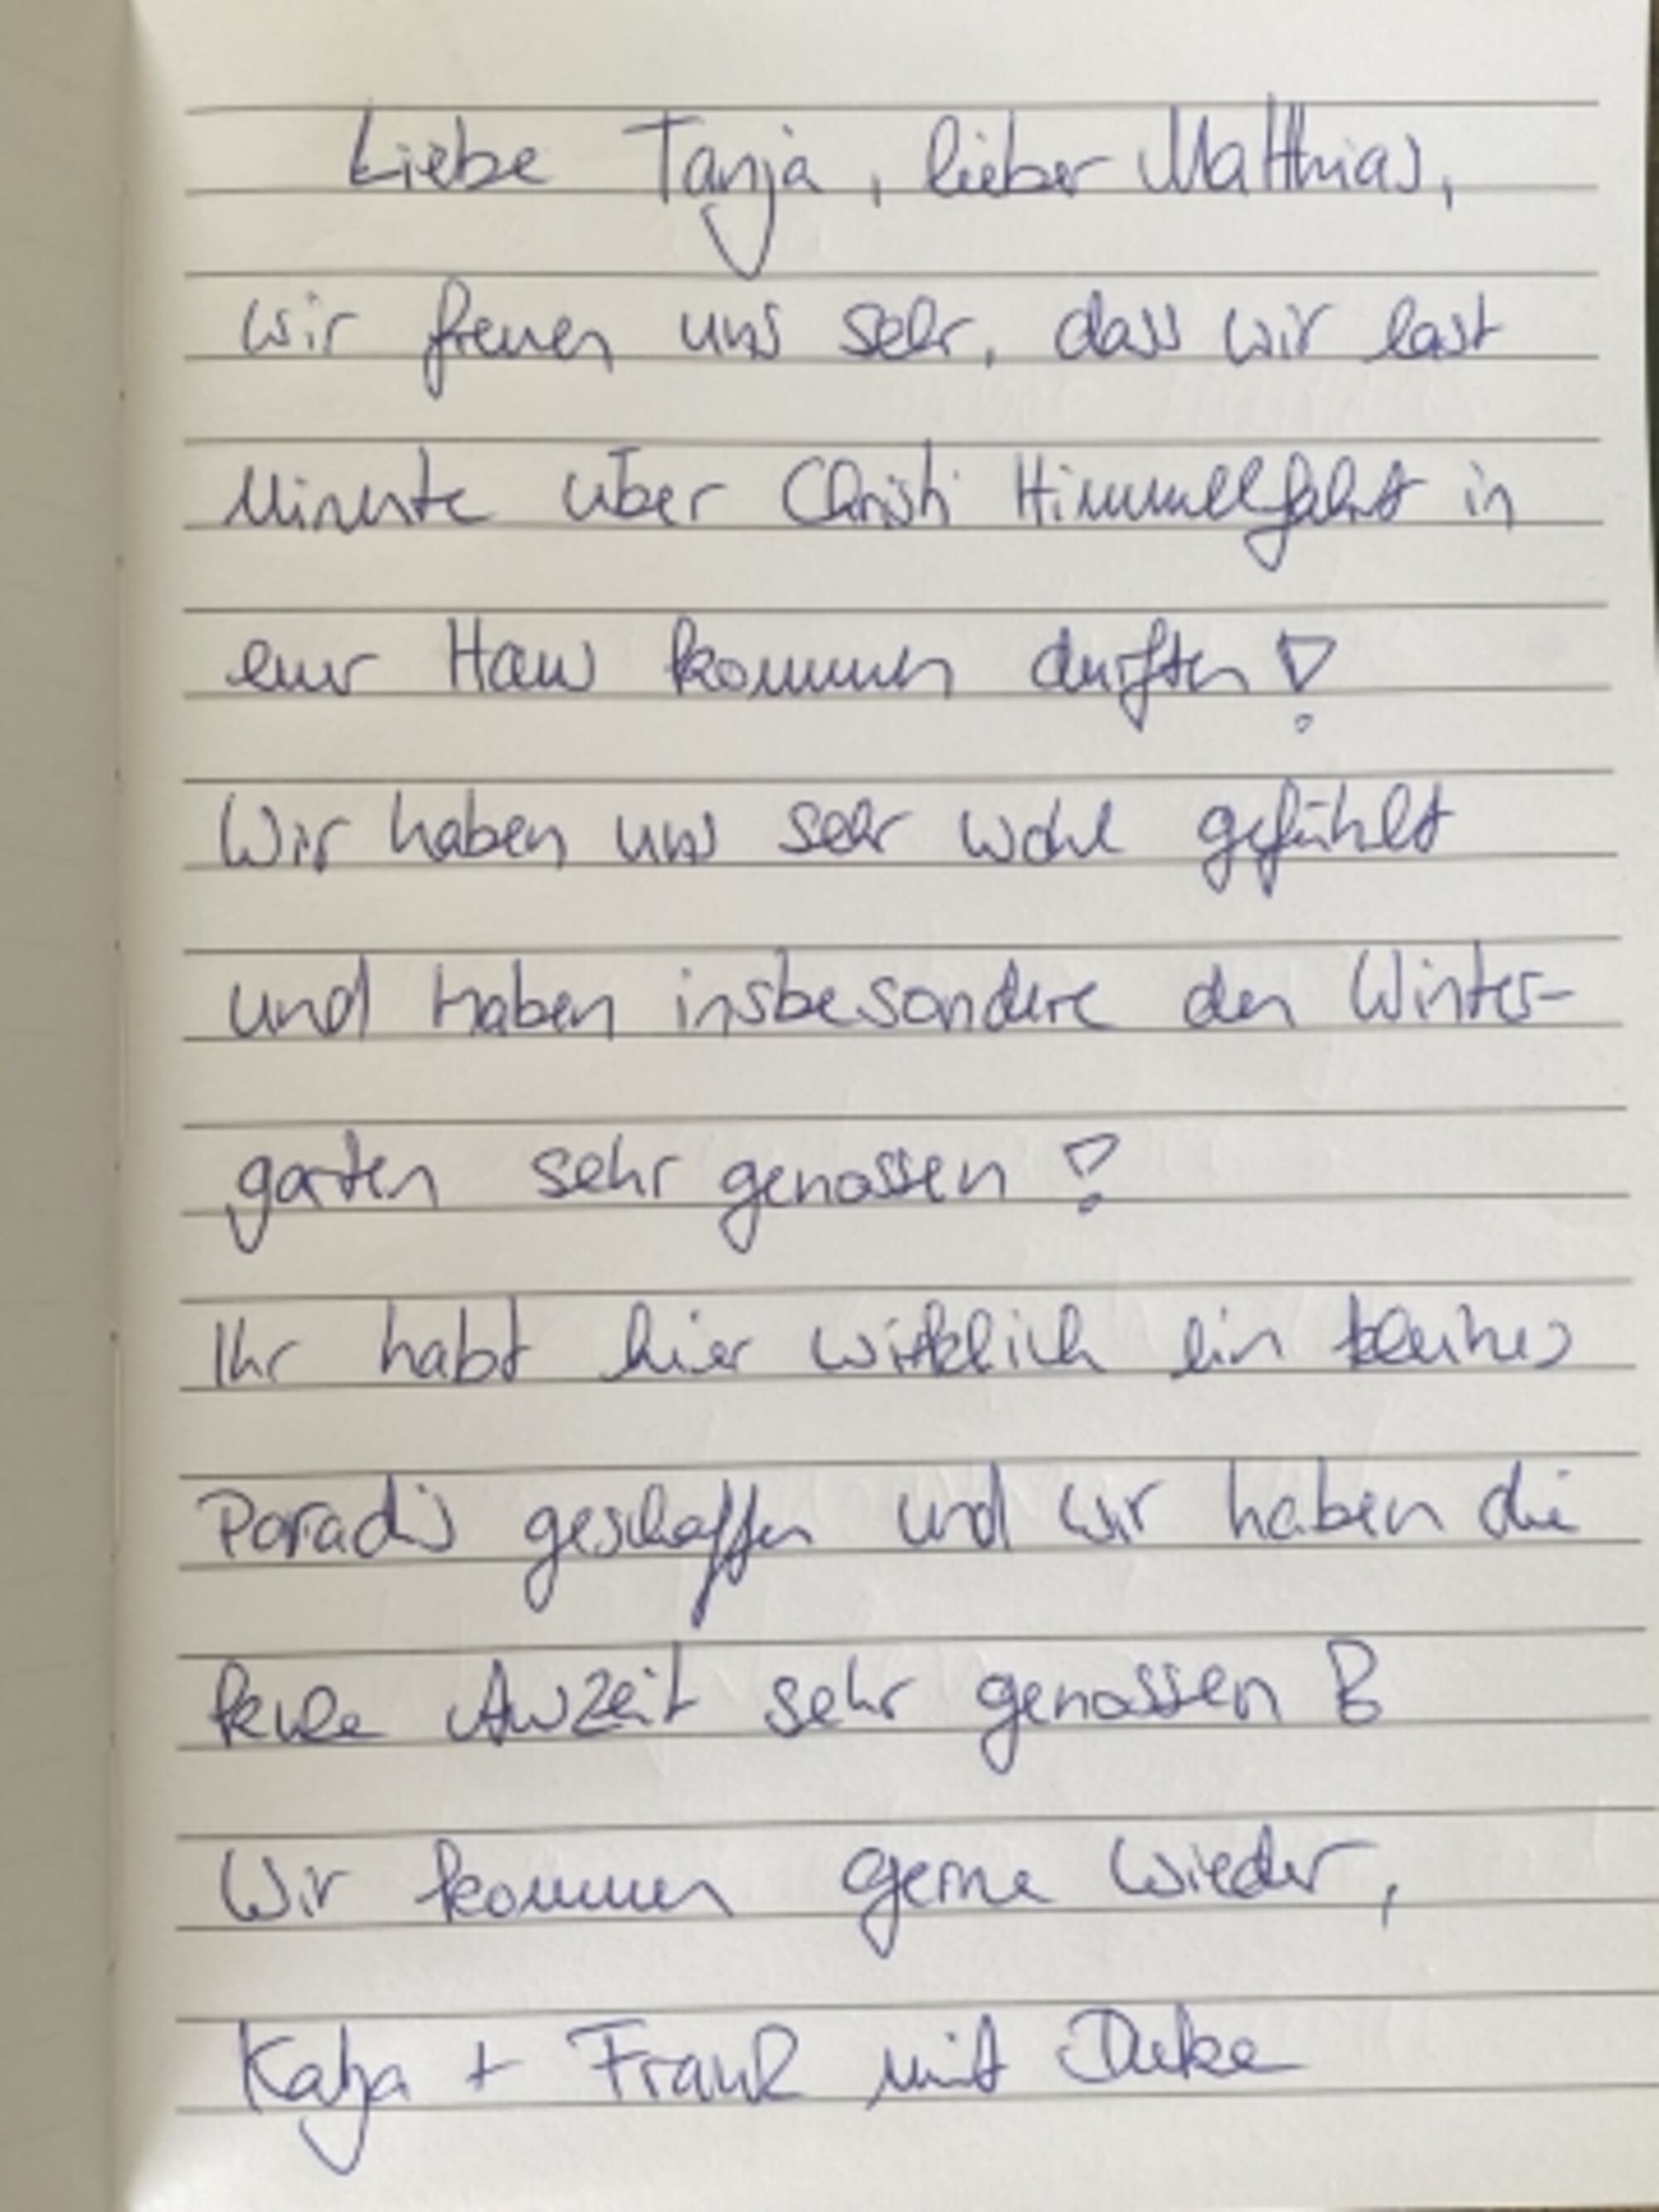 Liebe Tanja, lieber Matthias,
wir freuen uns sehr, dass wir last
Minute über Christi Himmelfahrt in
euer Haus kommen durften!
Wir haben uns sehr wohl gefühlt
und haben insbesondere den Winter-
garten sehr genossen!
Ihr habt hier wirklich ein kleines
Paradis geschaffen und wir haben die
kurze Auszeit sehr genossen!
Wir kommen gerne wieder,
Katja + Frank mit Duke